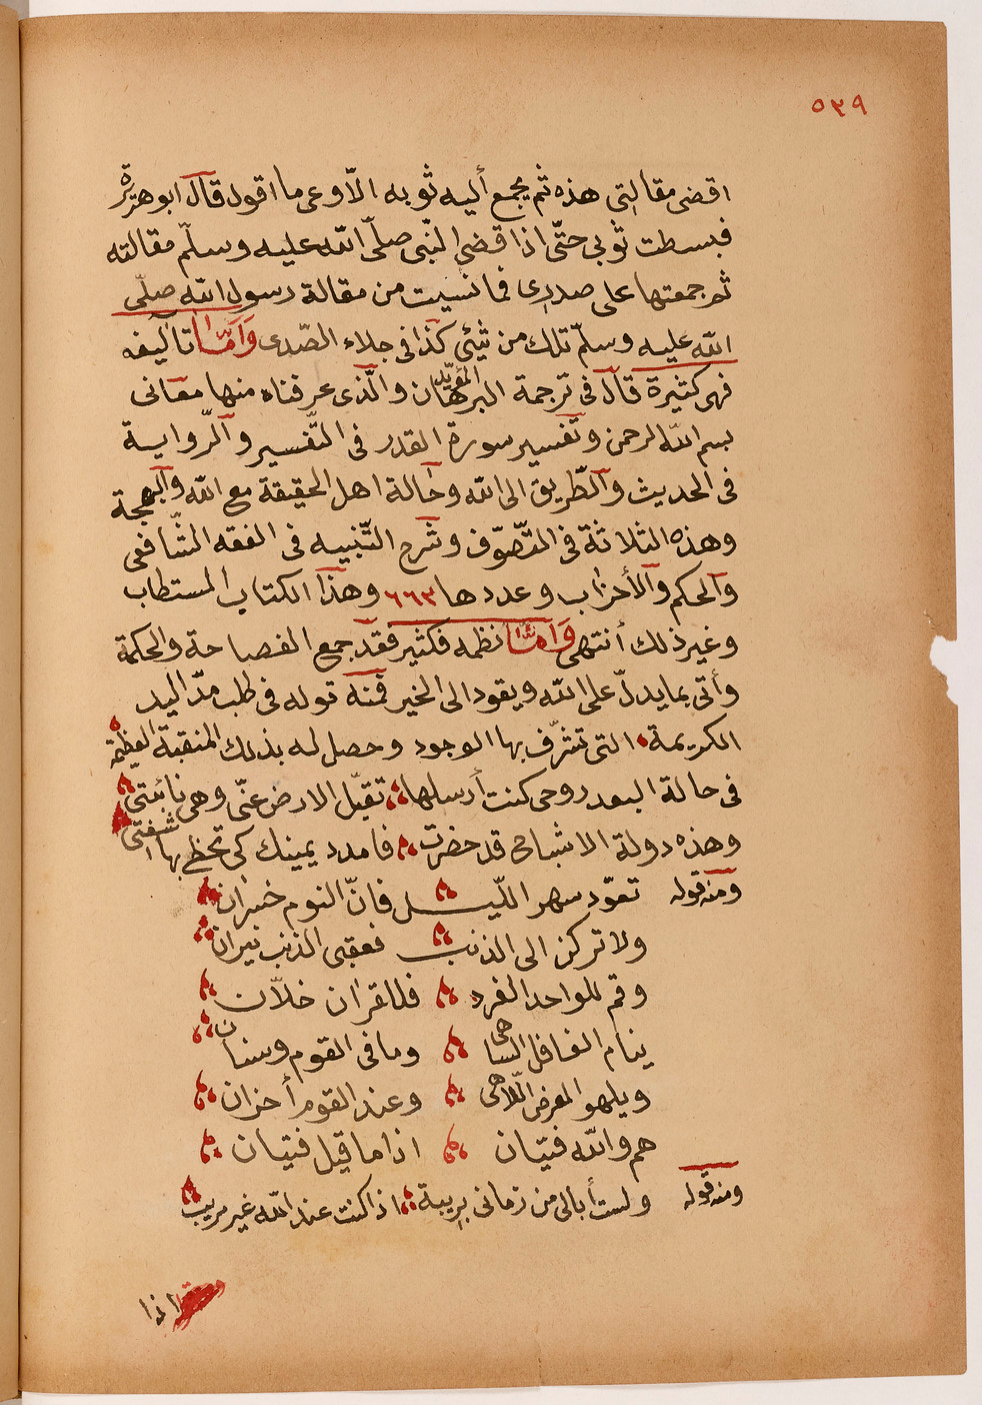 ٥٣٩
اقضى مقالتى هذه ثم يجمع أليه ثوبه الّا وعى ما اقول قال ابو هريرة
فبسطت ثوبى حتّى اذا قضى النّبى صلّى اللّه عليه وسلّم مقالته
ثم جمعتها على صدرى فما نسيت من مقالة رسول اللّه صلّى
اللّه عليه وسلّم تلك من شئ كذا فى جلاء الصّدى وَامّا تآليفه
فهى كثيرة قال فى ترجمة البرهان المؤيّد والّذى عرفناه منها معانى
بسم اللّه الرحمن وتفسير سورة القدر فى التّفسير والرّواية
فى الحديث والطّريق الى اللّه وحالة اهل الحقيقة مع اللّه والبهجة
وهذه الثلاثة فى التّصوّف وشرح التّنبيه فى الفقه الشّافعى
والحكم والأحزاب وعددها ٦٦٣ وهذا الكتاب المستطاب
وغير ذلك أنتهى وَامّا نظمه فكثير فقد جمع الفصاحة والحكمة
وأتى بما يدلّ على اللّه ويقود الى الخير فمنه قوله فى طلب مدّ اليد
الكريمة التى تشرّف بها الوجود وحصل له بذلك المنقبة العظيمة
فى حالة البعد روحى كنت أرسلها تقبّل الارض عنّى وهى نائبتى
وهذه دولة الاشباح قد حضرت فامدد يمينك كى تحظى بها شفتى
ومنه قوله تعوّد سهر اللّيل فانّ النوم خسران
ولا تركن الى الذنب فعقبى الذنب نيران
وقم للواحد الفرد فللقرٰان خلّان
ينام الغافل الساهى وما فى القوم وسنان
ويلهو المعرض اللّاهى وعند القوم أحزان
هم واللّه فتيان اذا ما قيل فتيان
ومنه قوله ولست أبالى من زمانى بريبة اذا كنت عند اللّه غير مريب
اذا